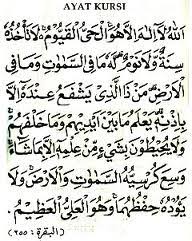 AYAT KURSI
اَللّٰهُ لَآ اِلٰهَ اِلَّا هُوَ الْحَيُّ الْقَيُّوْمُ ەۚ لَا تَأْخُذُهٗ
سِنَةٌ وَّلَا نَوْمٌ ۗ لَهٗ مَا فِى السَّمٰوٰتِ وَمَا فِى
الْاَرْضِ ۗ مَنْ ذَا الَّذِيْ يَشْفَعُ عِنْدَهٗٓ اِلَّا
بِاِذْنِهٖ ۗ يَعْلَمُ مَا بَيْنَ اَيْدِيْهِمْ وَمَا خَلْفَهُمْ ۚ
وَلَا يُحِيْطُوْنَ بِشَيْءٍ مِّنْ عِلْمِهٖٓ اِلَّا بِمَا شَآءَ ۚ
وَسِعَ كُرْسِيُّهُ السَّمٰوٰتِ وَالْاَرْضَ ۚ وَلَا
يَـُٔوْدُهٗ حِفْظُهُمَا ۚ وَهُوَ الْعَلِيُّ الْعَظِيْمُ .
(البقرة : ٢٥٥)